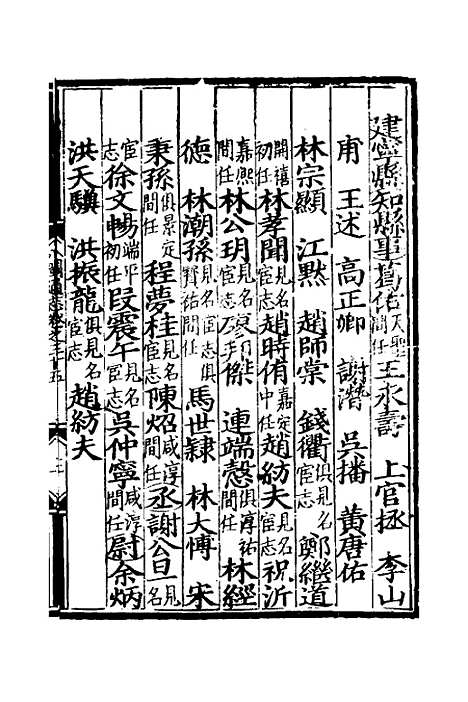 建寧縣知縣事葛佑天聖間任王永壽　上官拯　李山
甫　王述　高正卿　謝潛　吳播　黃唐佑
林宗顯　江默　趙師棠　錢衢俱見名宦志鄭繼道
開禧初任林孝聞見名宦志趙時侑嘉定中任趙紡夫見名宦志祝沂
嘉熙間任林公玥見名宦志傑　連端愨俱淳祐間任林經
德　林潮孫見名宦志俱寶祐間任馬世隸　林大博　宋
秉孫俱景定間任程夢桂見名宦志陳炤咸淳間任丞謝公旦見名
宦志徐文暢端平初任段震午見名宦志吳仲寧咸淳間任尉余炳
洪天驥　洪振龍俱見名宦志趙紡夫